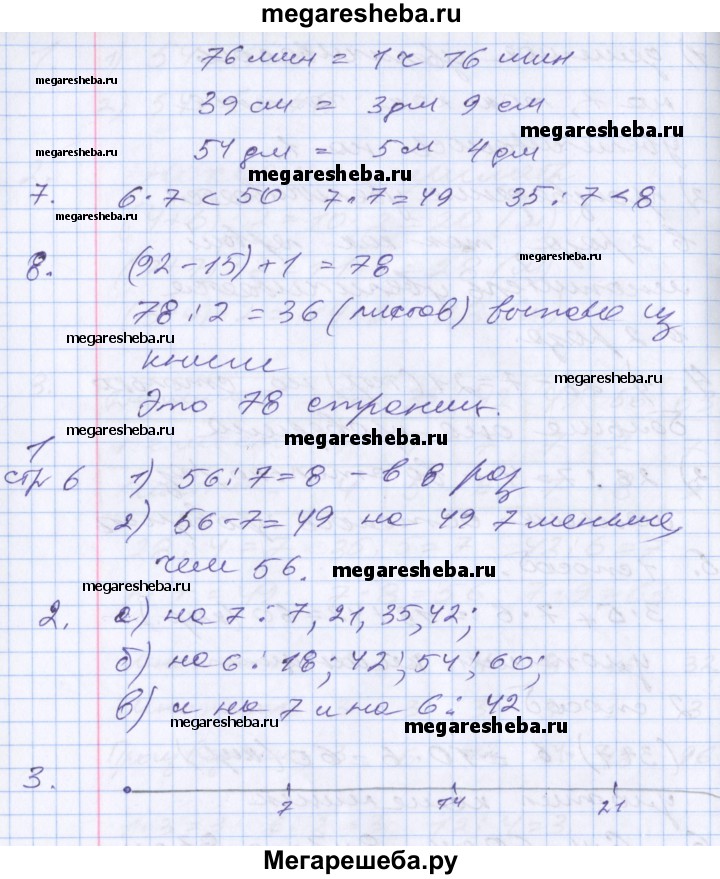 megaresheba.ru
76 мин = 1 ч 16 мин
megaresheba.ru
39 см = 3 дм 9 см
megaresheba.ru
megaresheba.ru
54 дм = 5 м 4 дм
megaresheba.ru
7. 6 · 7 < 50 7 · 7 = 49 35 : 7 < 8
megaresheba.ru
megaresheba.ru
8. (92 - 15) + 1 = 78
78 : 2 = 36 (листов) выпало из
megaresheba.ru
книги
megaresheba.ru
Это 78 страниц.
megaresheba.ru
megaresheba.ru
1
стр 6 1) 56 : 7 = 8 - в 8 раз
2) 56 - 7 = 49 на 49 7 меньше,
чем 56.
megaresheba.ru
megaresheba.ru
2. а) на 7 : 7, 21, 35, 42;
б) на 6 : 18; 42; 54; 60;
в) и на 7 и на 6 : 42
megaresheba.ru
megaresheba.ru
3.
7 14 21
Мегарешеба.ру